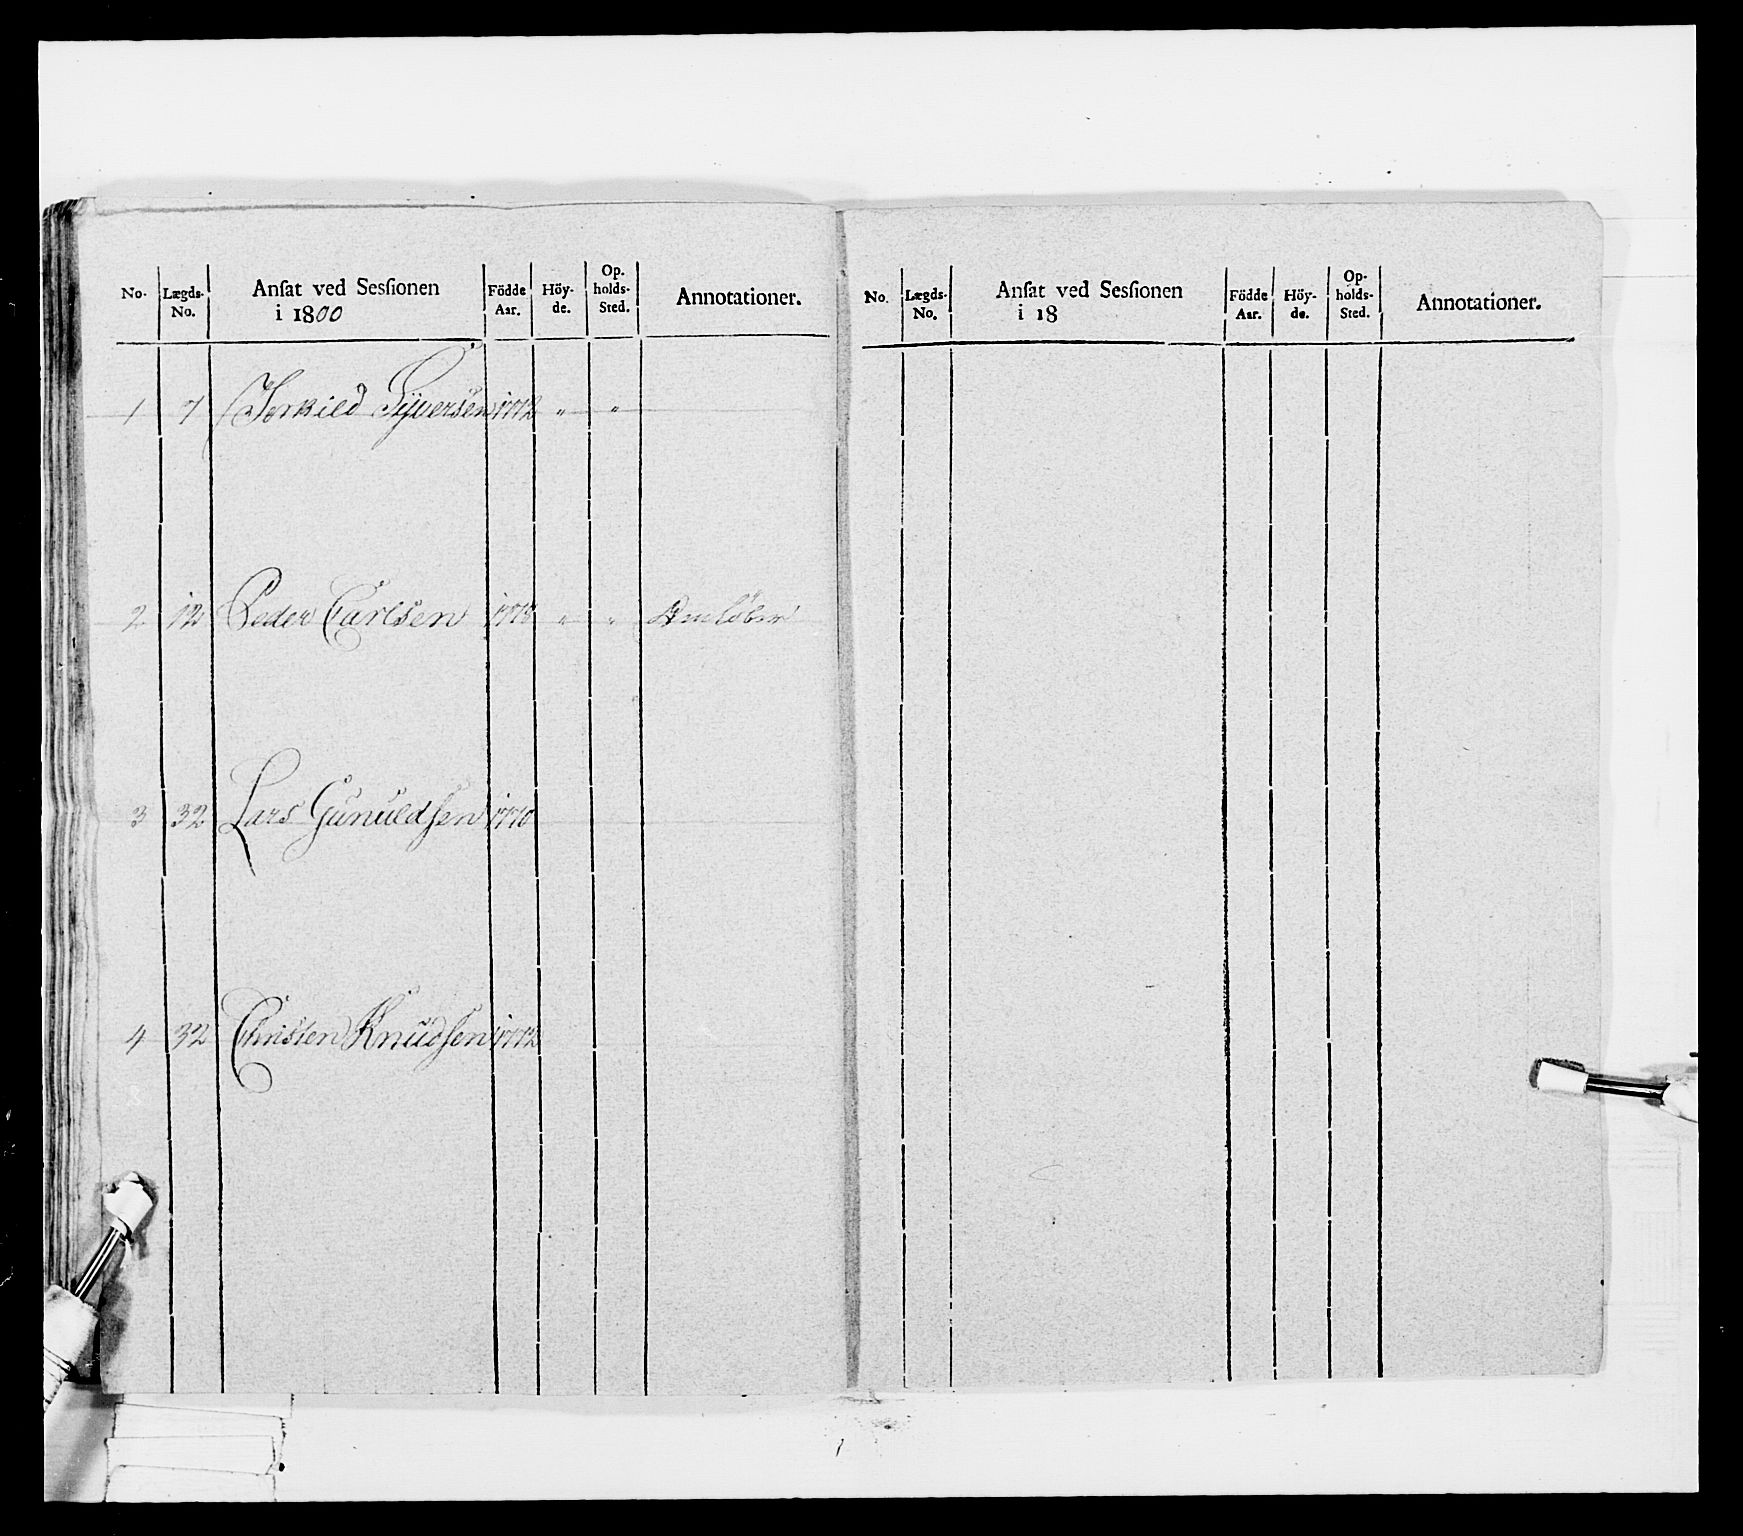 No. Lægds-No. Anſat ved Sesſionen i 1800 Födde Aar. Höy-de. Op-holds-Sted. Annotationer.
1 7 Terkild Syversen 1772 " "
2 12 Peder Carlsen 1778 " "
3 32 Lars Gunuldsen 1770
4 32 Christen Knudsen 1772
No. Lægds-No. Anſat ved Sesſionen i 18 Födde Aar. Höy-de. Op-holds-Sted. Annotationer.